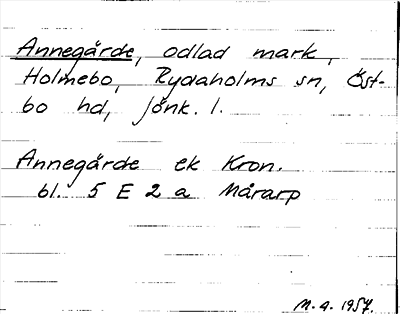 Annegärde, odlad mark,
Holmebo, Rydaholms sn, Öst-
bo hd, Jönk. l.
Annegärde ek Kron.
bl. 5 E 2 a Mårarp
M. a. 1957.